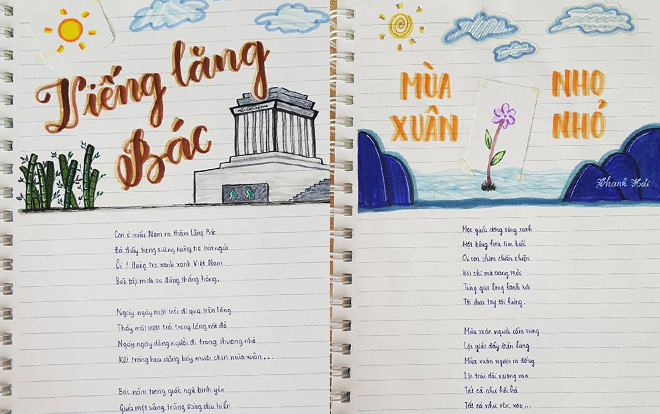 Viếng lăng
Bác
Con ở miền Nam ra thăm Lăng Bác
Đã thấy trong sương hàng tre bát ngát
Ôi! Hàng tre xanh xanh Việt Nam
Bão táp mưa sa đứng thẳng hàng.
Ngày ngày mặt trời đi qua trên lăng
Thấy một mặt trời trong lăng rất đỏ
Ngày ngày dòng người đi trong thương nhớ
Kết tràng hoa dâng bảy mươi chín mùa xuân...
Bác nằm trong giấc ngủ bình yên
Giữa một vầng trăng sáng dịu hiền
MÙA XUÂN
NHO NHỎ
Thanh Hải
Mọc giữa dòng sông xanh
Một bông hoa tím biếc
Ơi con chim chiền chiện
Hót chi mà vang trời
Từng giọt long lanh rơi
Tôi đưa tay tôi hứng.
Mùa xuân người cầm súng
Lộc giắt đầy trên lưng
Mùa xuân người ra đồng
Lộc trải dài nương mạ
Tất cả như hối hả
Tất cả như xôn xao...